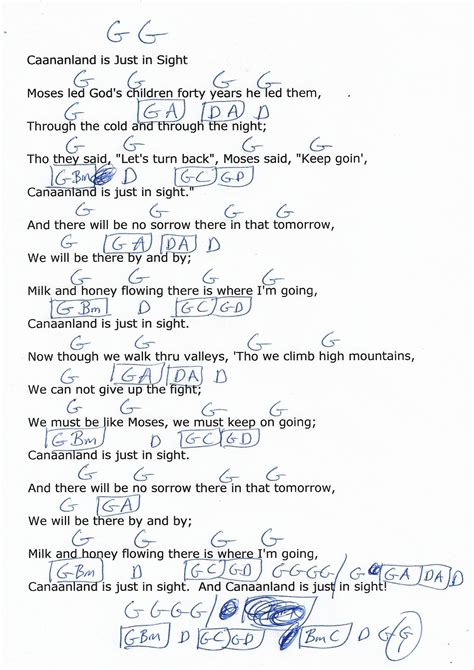 G G
Caananland is Just in Sight
G G G G
Moses led God's children forty years he led them,
G GA DA D
Through the cold and through the night;
G G G G
Tho they said, "Let's turn back", Moses said, "Keep goin',
GBm D GC GD
Canaanland is just in sight."
G G G G
And there will be no sorrow there in that tomorrow,
G GA DA D
We will be there by and by;
G G G G
Milk and honey flowing there is where I'm going,
G Bm D GC GD
Canaanland is just in sight.
G G G G
Now though we walk thru valleys, 'Tho we climb high mountains,
G GA DA D
We can not give up the fight;
G G G G
We must be like Moses, we must keep on going;
G Bm D GC GD
Canaanland is just in sight.
G G G G
And there will be no sorrow there in that tomorrow,
G GA
We will be there by and by;
G G G G
Milk and honey flowing there is where I'm going,
GBm D GC GD GGGG/ G GA DA D
Canaanland is just in sight. And Canaanland is just in sight!
G G G G/
GBm D GC GD BmC D G/G